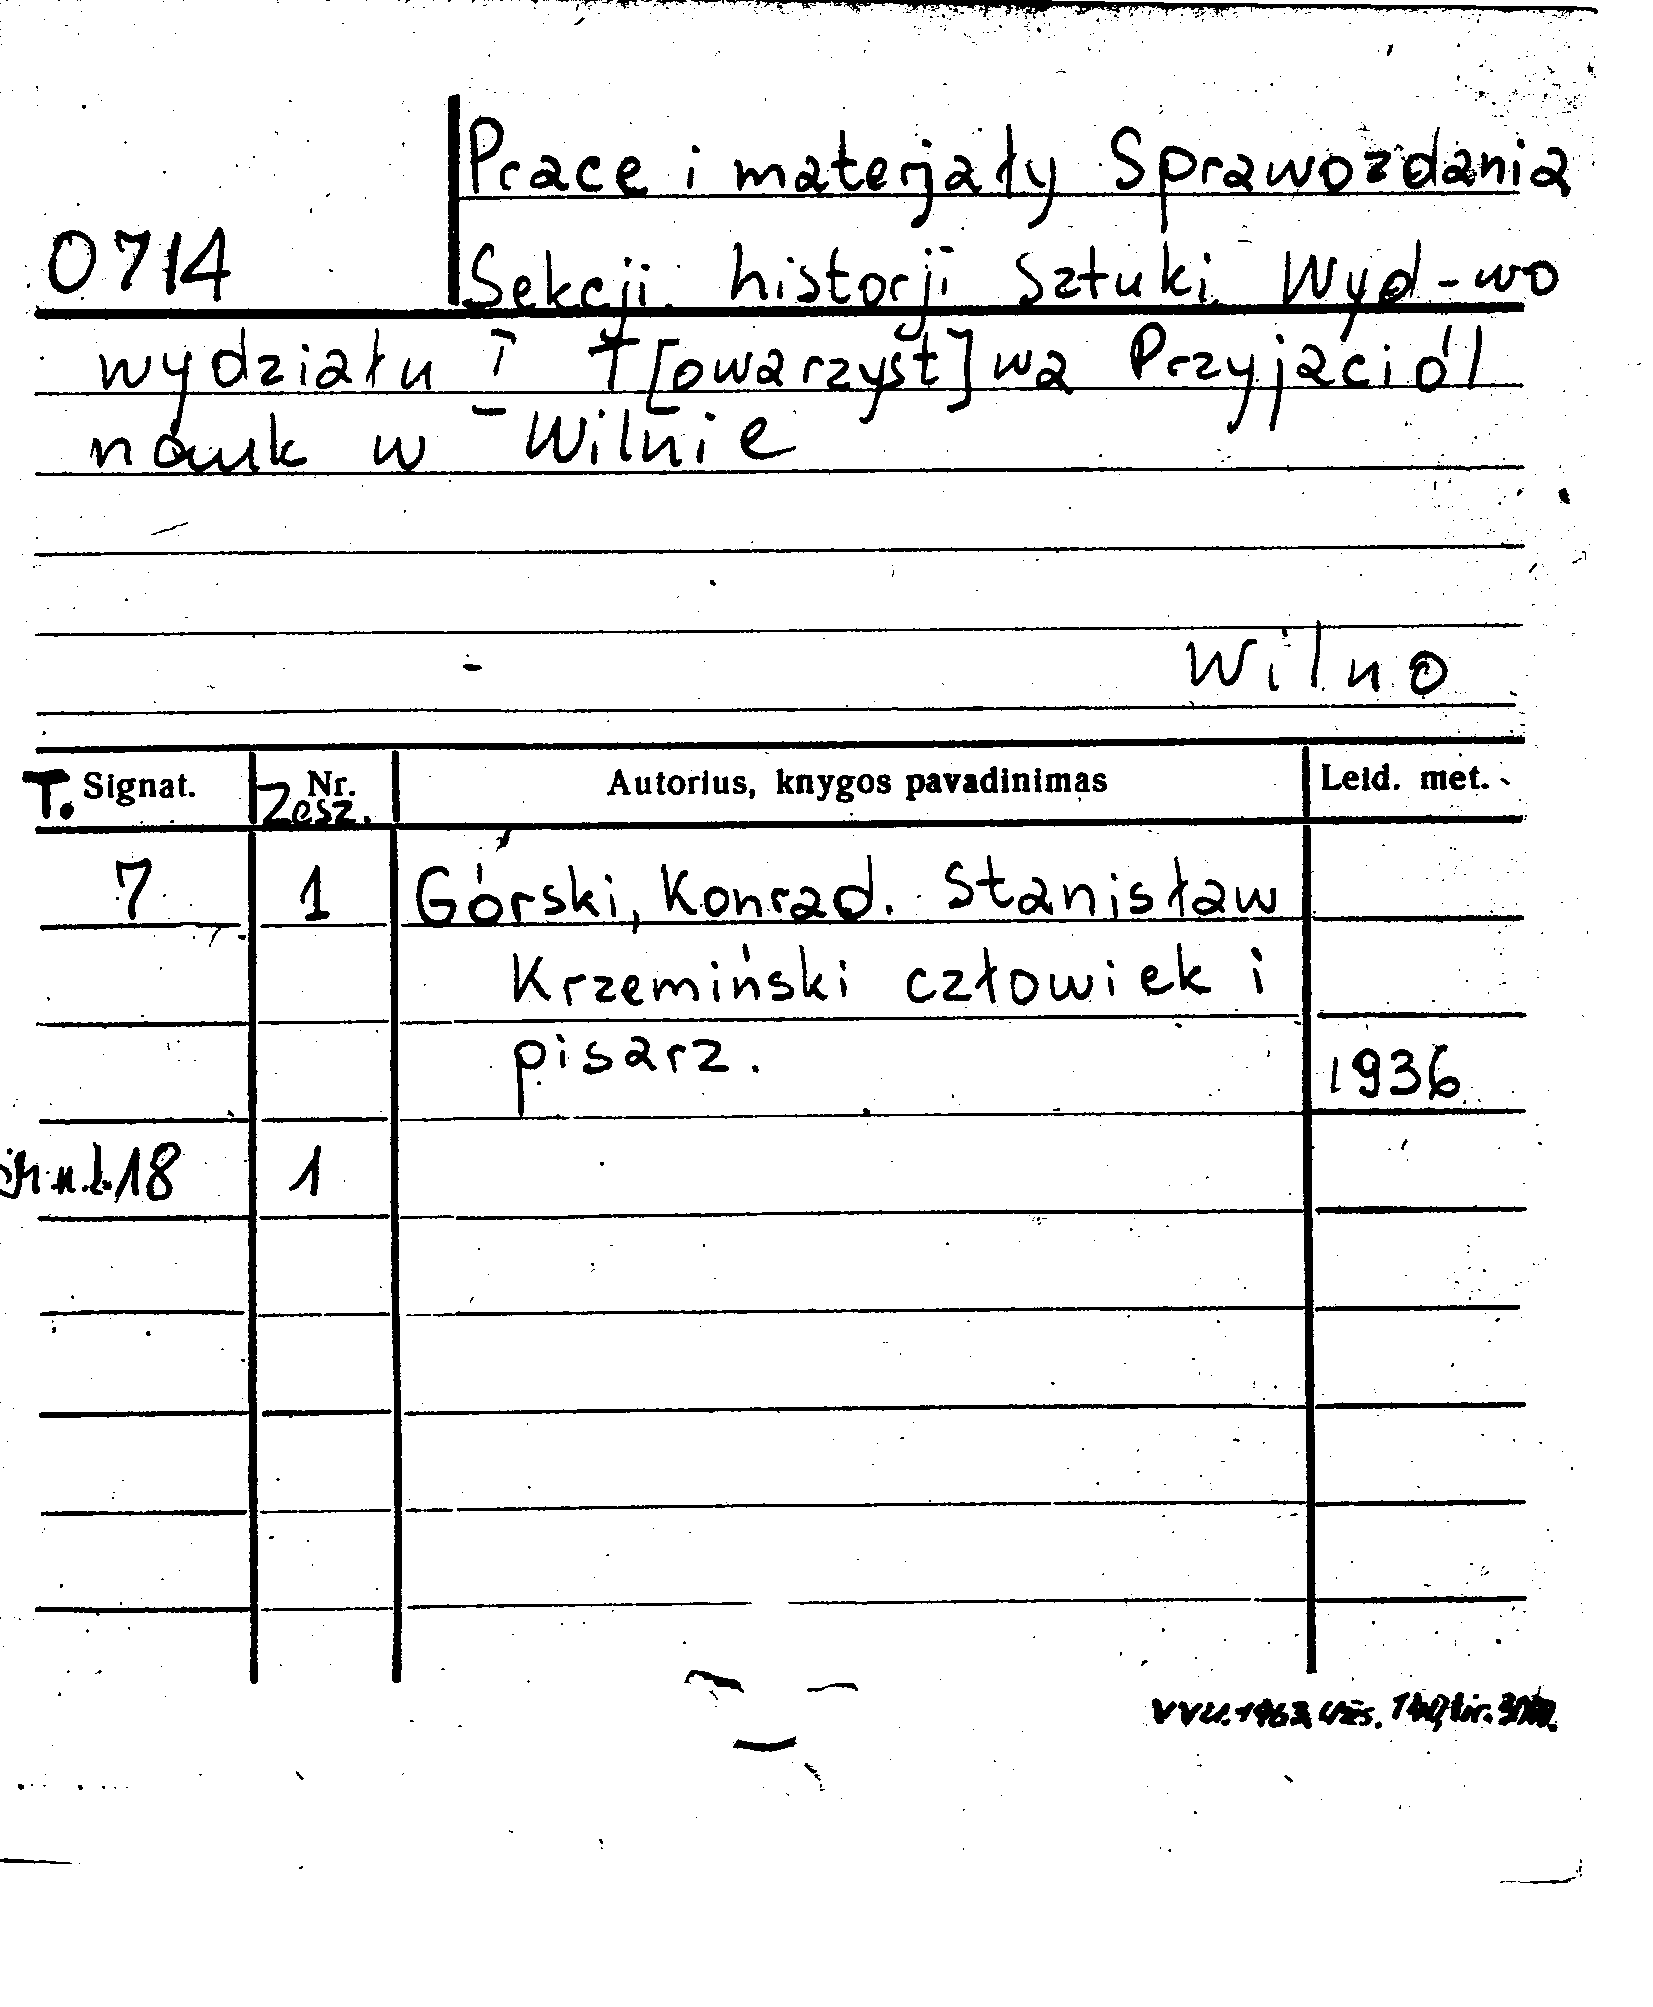 Prace i materjały Sprawozdania
0714 Sekcji historji Sztuki Wyd-wo
wydziału I T[owarzyst]wa Przyjaciół
nauk w Wilnie
Wilno
T. Signat. Nr. Zesz. Autorius, knygos pavadinimas Leid. met.
7 1 Górski, Konrad. Stanisław
Krzemiński człowiek i
pisarz. 1936
18 1
VVU.-1963